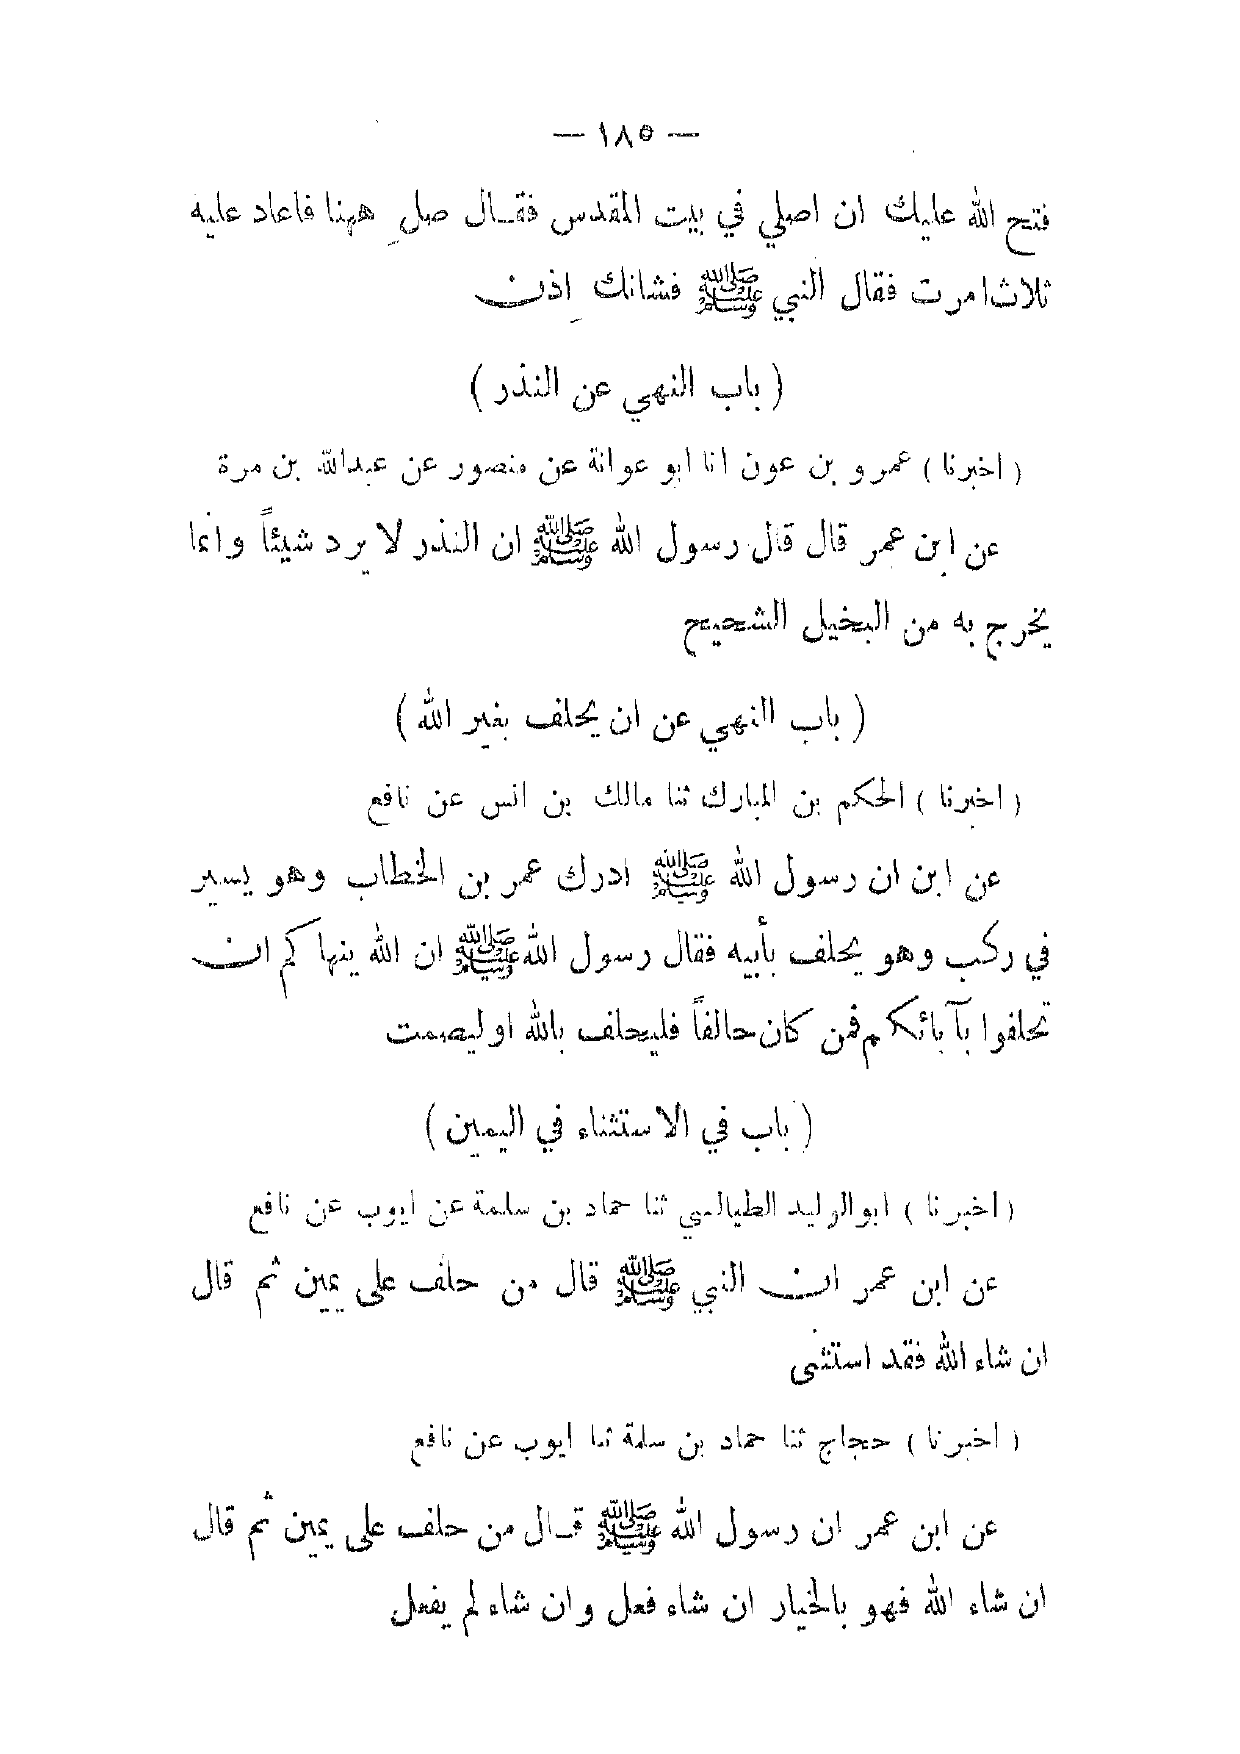 — ١٨٥ —
فتح الله عليك ان اصلي في بيت المقدس فقـال صلِ ههنا فاعاد عليه
ثلاثا مرت فقال النبي ﷺ فشانك اِذن
( باب النهي عن النذر )
( اخبرنا ) عمرو بن عون انا ابو عوانة عن منصور عن عبدالله بن مرة
عن ابن عمر قال قال رسول الله ﷺ ان النذر لا يرد شيئاً وانما
يخرج به من البخيل الشحيح
( باب النهي عن ان يحلف بغير الله )
( اخبرنا ) الحكم بن المبارك ثنا مالك بن انس عن نافع
عن ابن ان رسول الله ﷺ ادرك عمر بن الخطاب وهو يسير
في ركب وهو يحلف بأبيه فقال رسول الله ﷺ ان الله ينهاكم ان
تحلفوا بآبائكم فمن كان حالفاً فليحلف بالله او ليصمت
( باب في الاستثناء في اليمين )
( اخبرنا ) ابو الوليد الطيالسي ثنا حماد بن سلمة عن ايوب عن نافع
عن ابن عمر ان النبي ﷺ قال من حلف على يمين ثم قال
ان شاء الله فقد استثنى
( اخبرنا ) حجاج ثنا حماد بن سلمة ثنا ايوب عن نافع
عن ابن عمر ان رسول الله ﷺ قـال من حلف على يمين ثم قال
ان شاء الله فهو بالخيار ان شاء فعل وان شاء لم يفعل